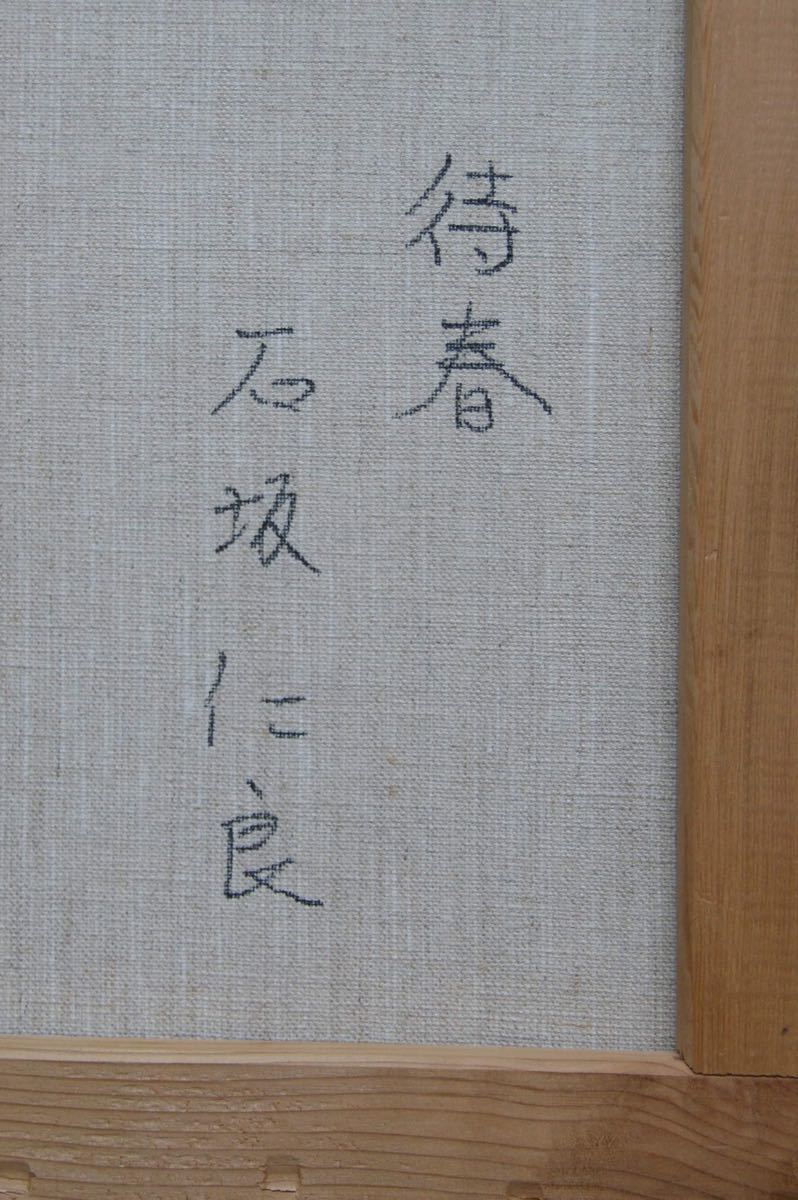 待春
石坂仁良